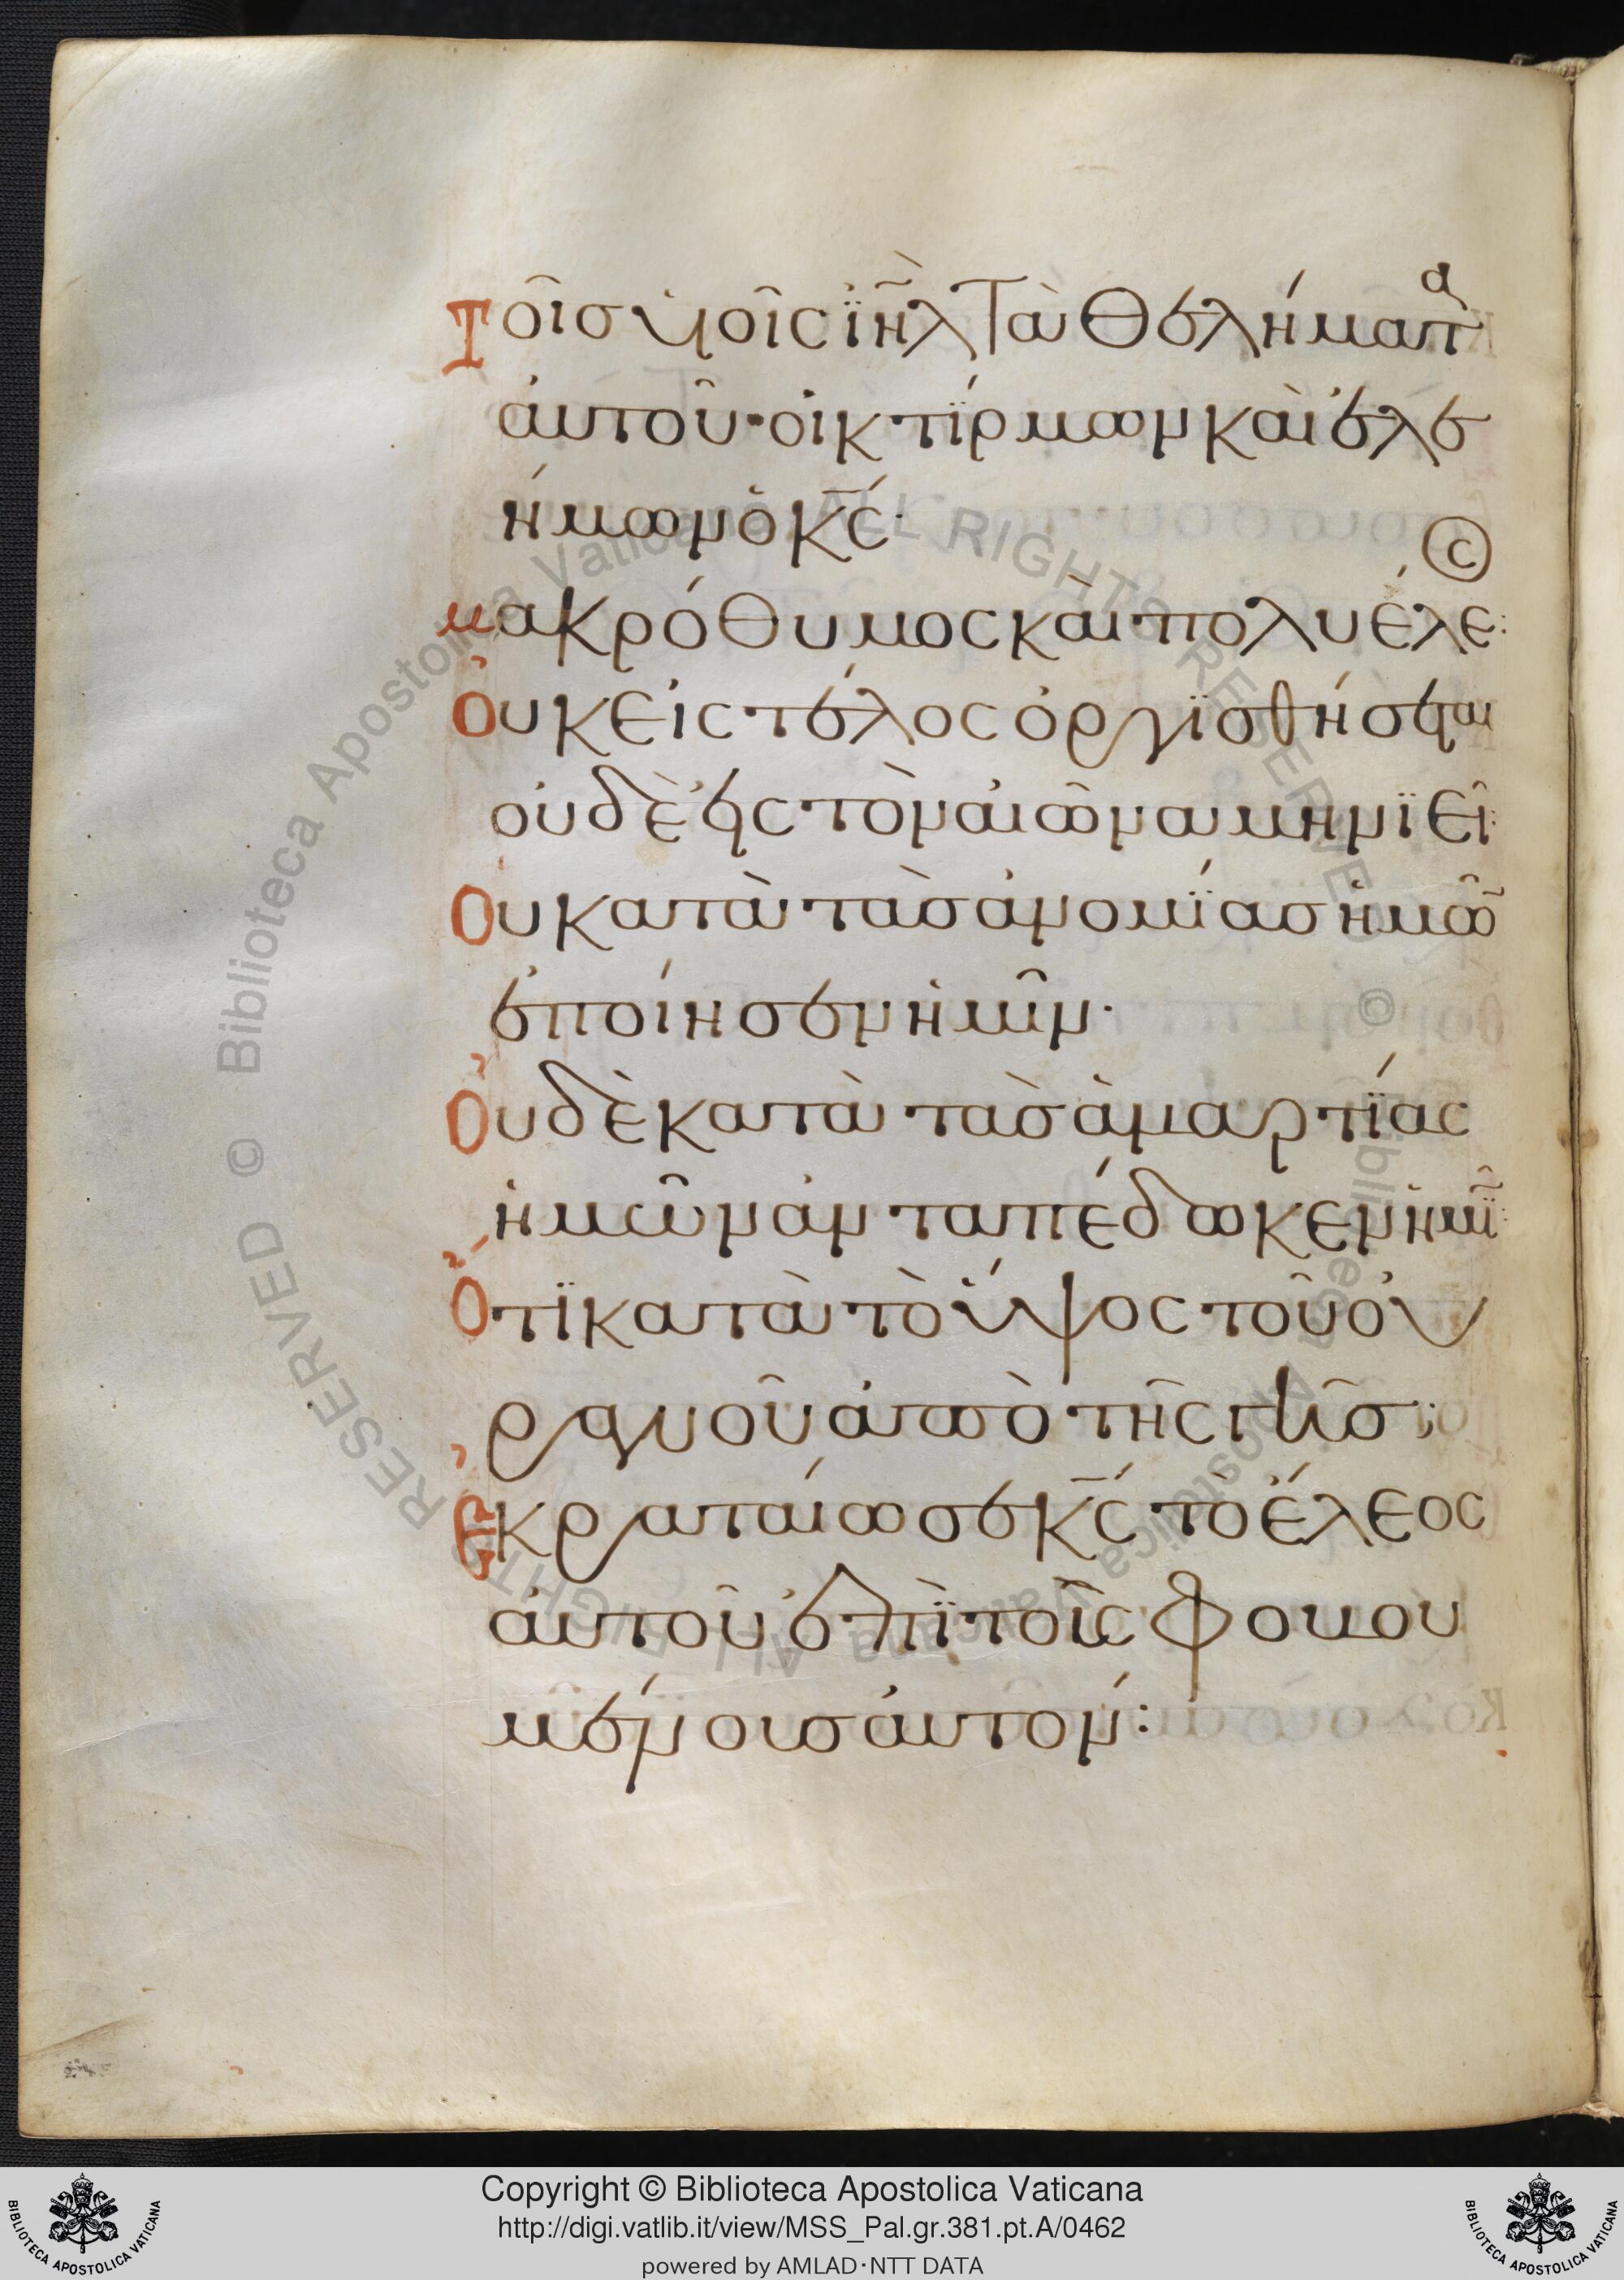 Τοῖσ ὑιοῖς ϊη̃λ Τὰ Θελήματα
ἀυτοῦ· οἰκτΐρμων καὶ ἐλε
ήμων ὁ κς̄·
μακρόθυμος καὶ πολυέλε:
Ὀυκ εἰς τέλος ὀργϊσθήσεται
οὐδὲ εἰς τὸν αἰῶνα μηνϊεῖ:
Ὀυ κατὰ τὰσ ἀνομΐασ ἡμῶ̄
ἐποίησεν ἡμῖν·
Ὀυδὲ κατὰ τὰσ ἁμαρτΐας
ἡμῶν ἀνταπέδωκεν ἡμῖ̄:
Ὅτϊ κατὰ τὸ ὕψος τοῦ ὀυ
ρανοῦ ἀπὸ τῆς γῆσ:
Ἐκραταίωσε κς̄ τὸ ἔλεος
ἀυτοῦ ἐπῒ τοὺς φοβου
μένουσ ἀυτόν:
Copyright © Biblioteca Apostolica Vaticana
http://digi.vatlib.it/view/MSS_Pal.gr.381.pt.A/0462
powered by AMLAD·NTT DATA
BIBLIOTECA APOSTOLICA VATICANA
BIBLIOTECA APOSTOLICA VATICANA
© Biblioteca Apostolica Vaticana ALL RIGHTS RESERVED © Biblioteca Apostolica Vaticana ALL RIGHTS RESERVED